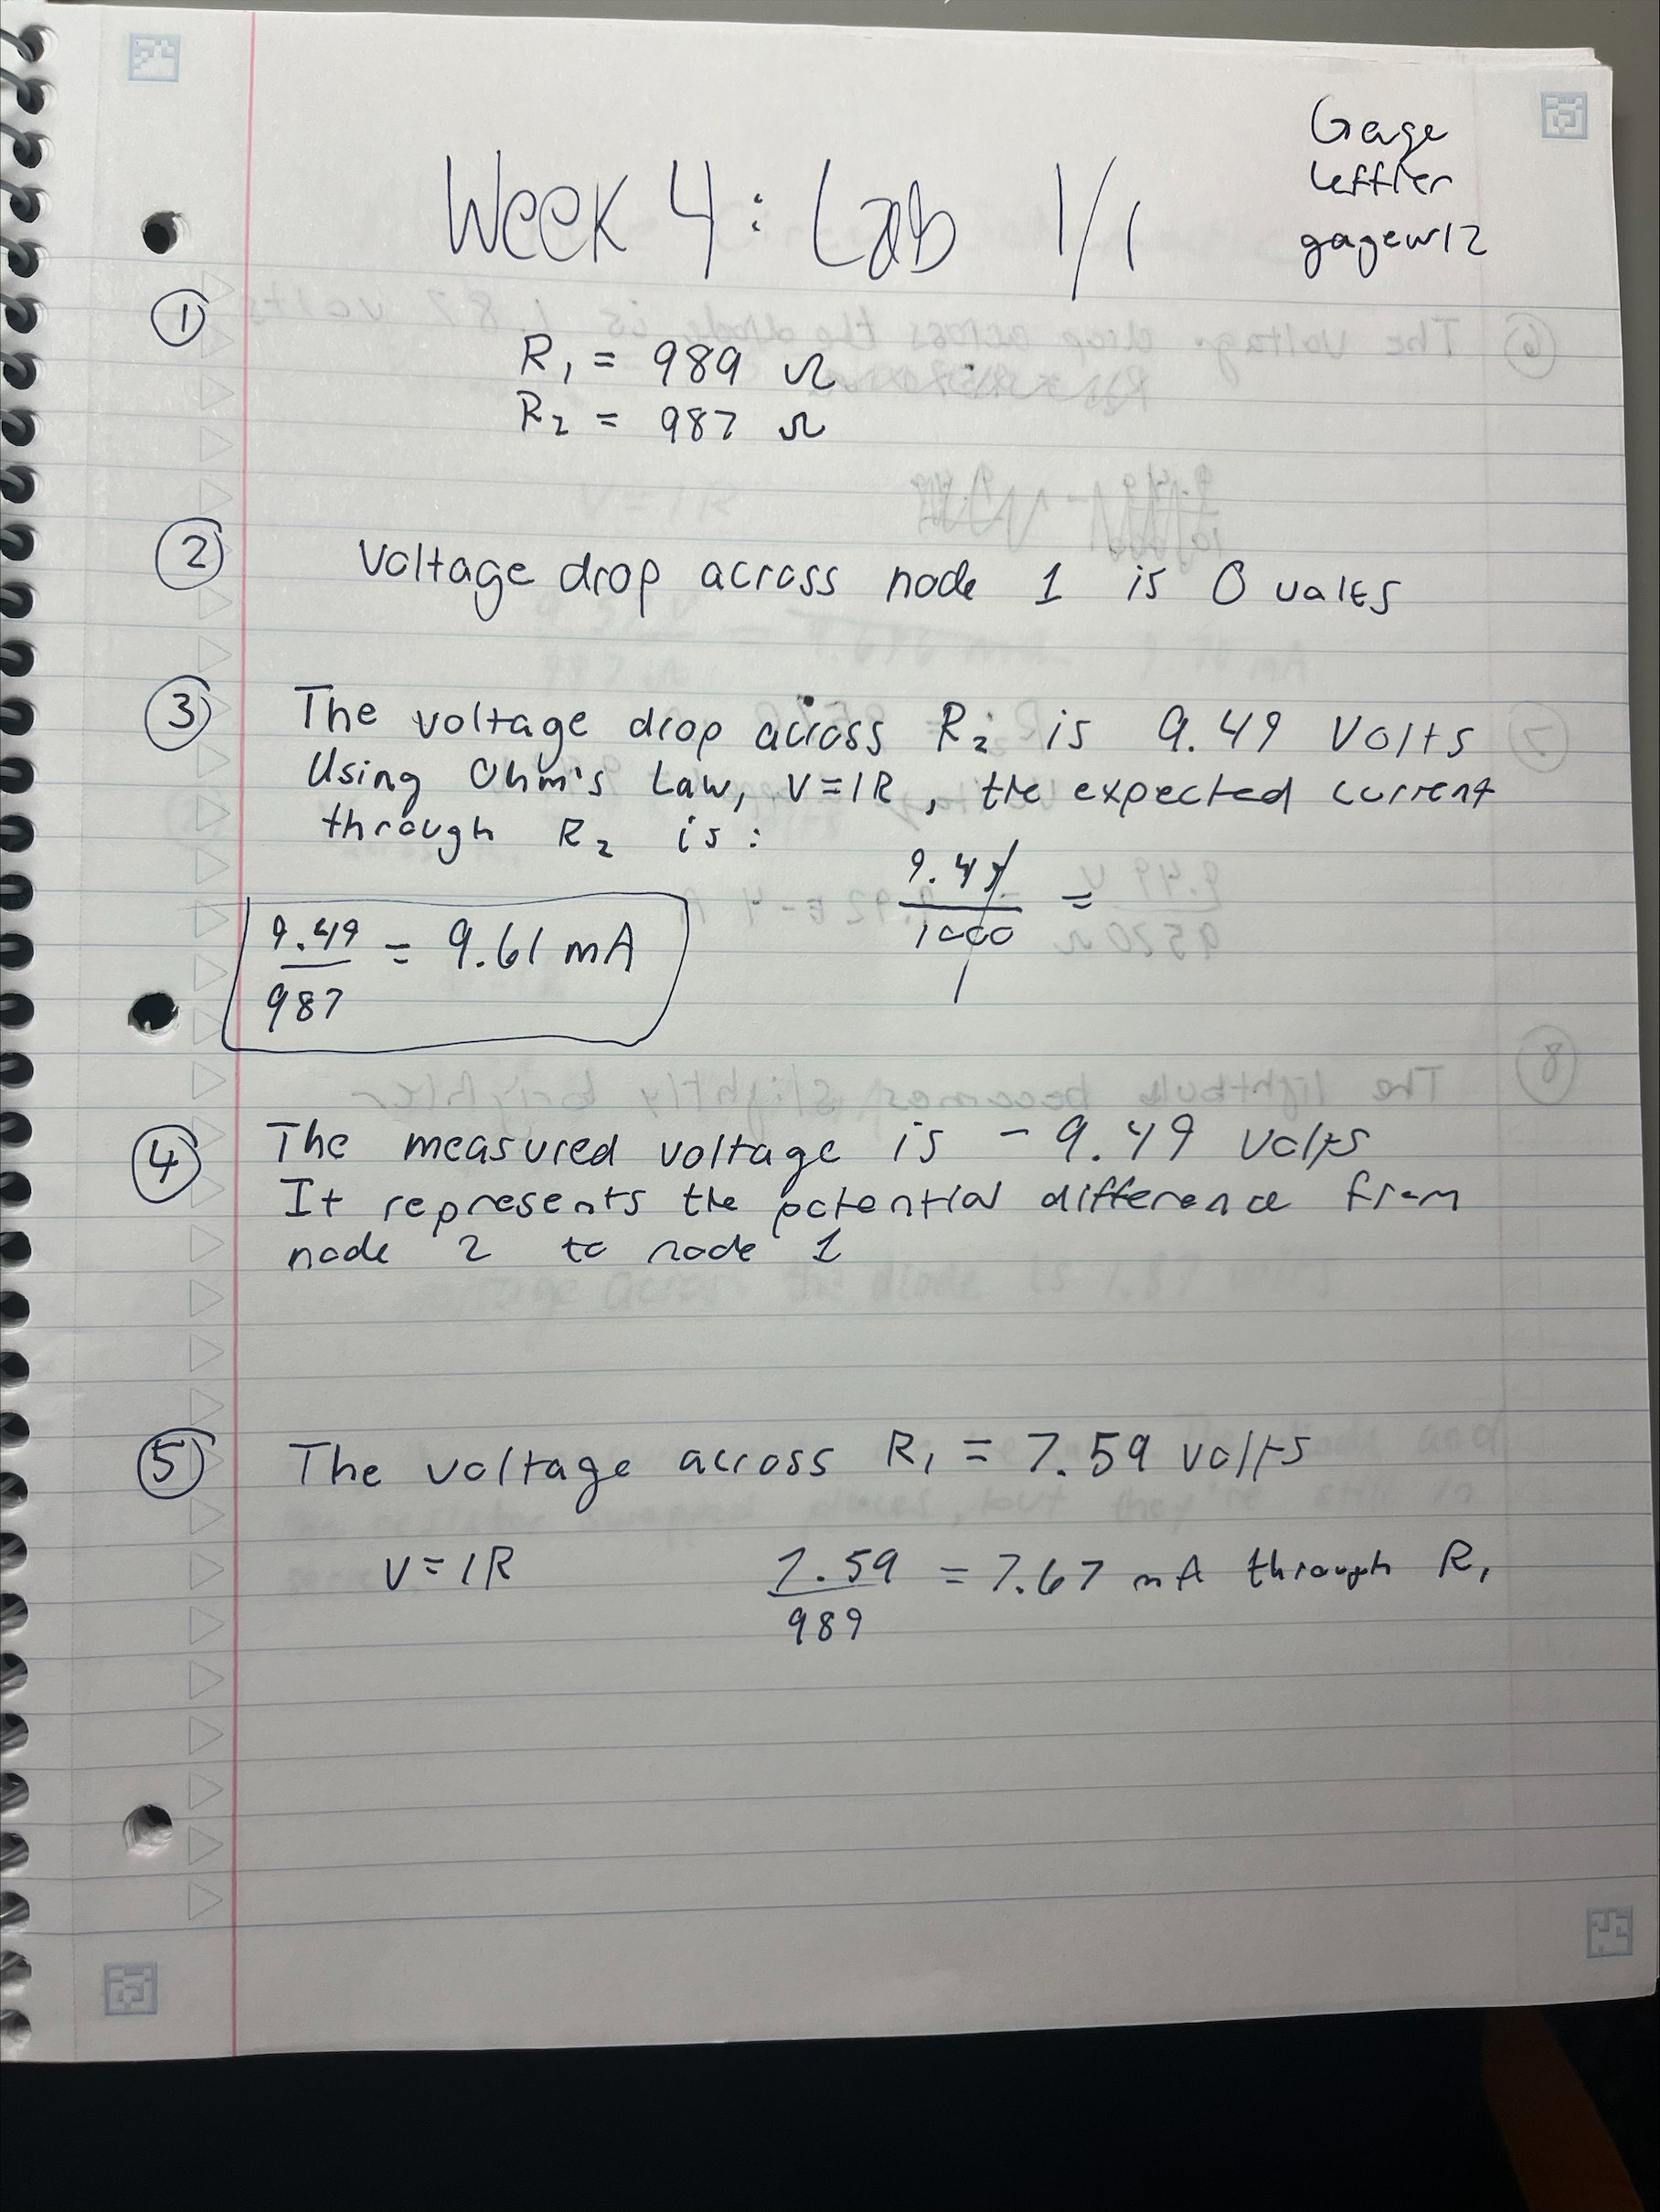 Gage
Leffler
gagew12
Week 4: Lab 1/1
①
R₁ = 989 Ω
R₂ = 987 Ω
② Voltage drop across node 1 is 0 volts
③ The voltage drop across R₂ is 9.49 Volts
Using Ohm's Law, V=IR, the expected current
through R₂ is:
9.49/1000 =
9.49/987 = 9.61 mA
④ The measured voltage is -9.49 volts
It represents the potential difference from
node 2 to node 1
⑤ The voltage across R₁ = 7.59 volts
V=IR 7.59/989 = 7.67 mA through R₁